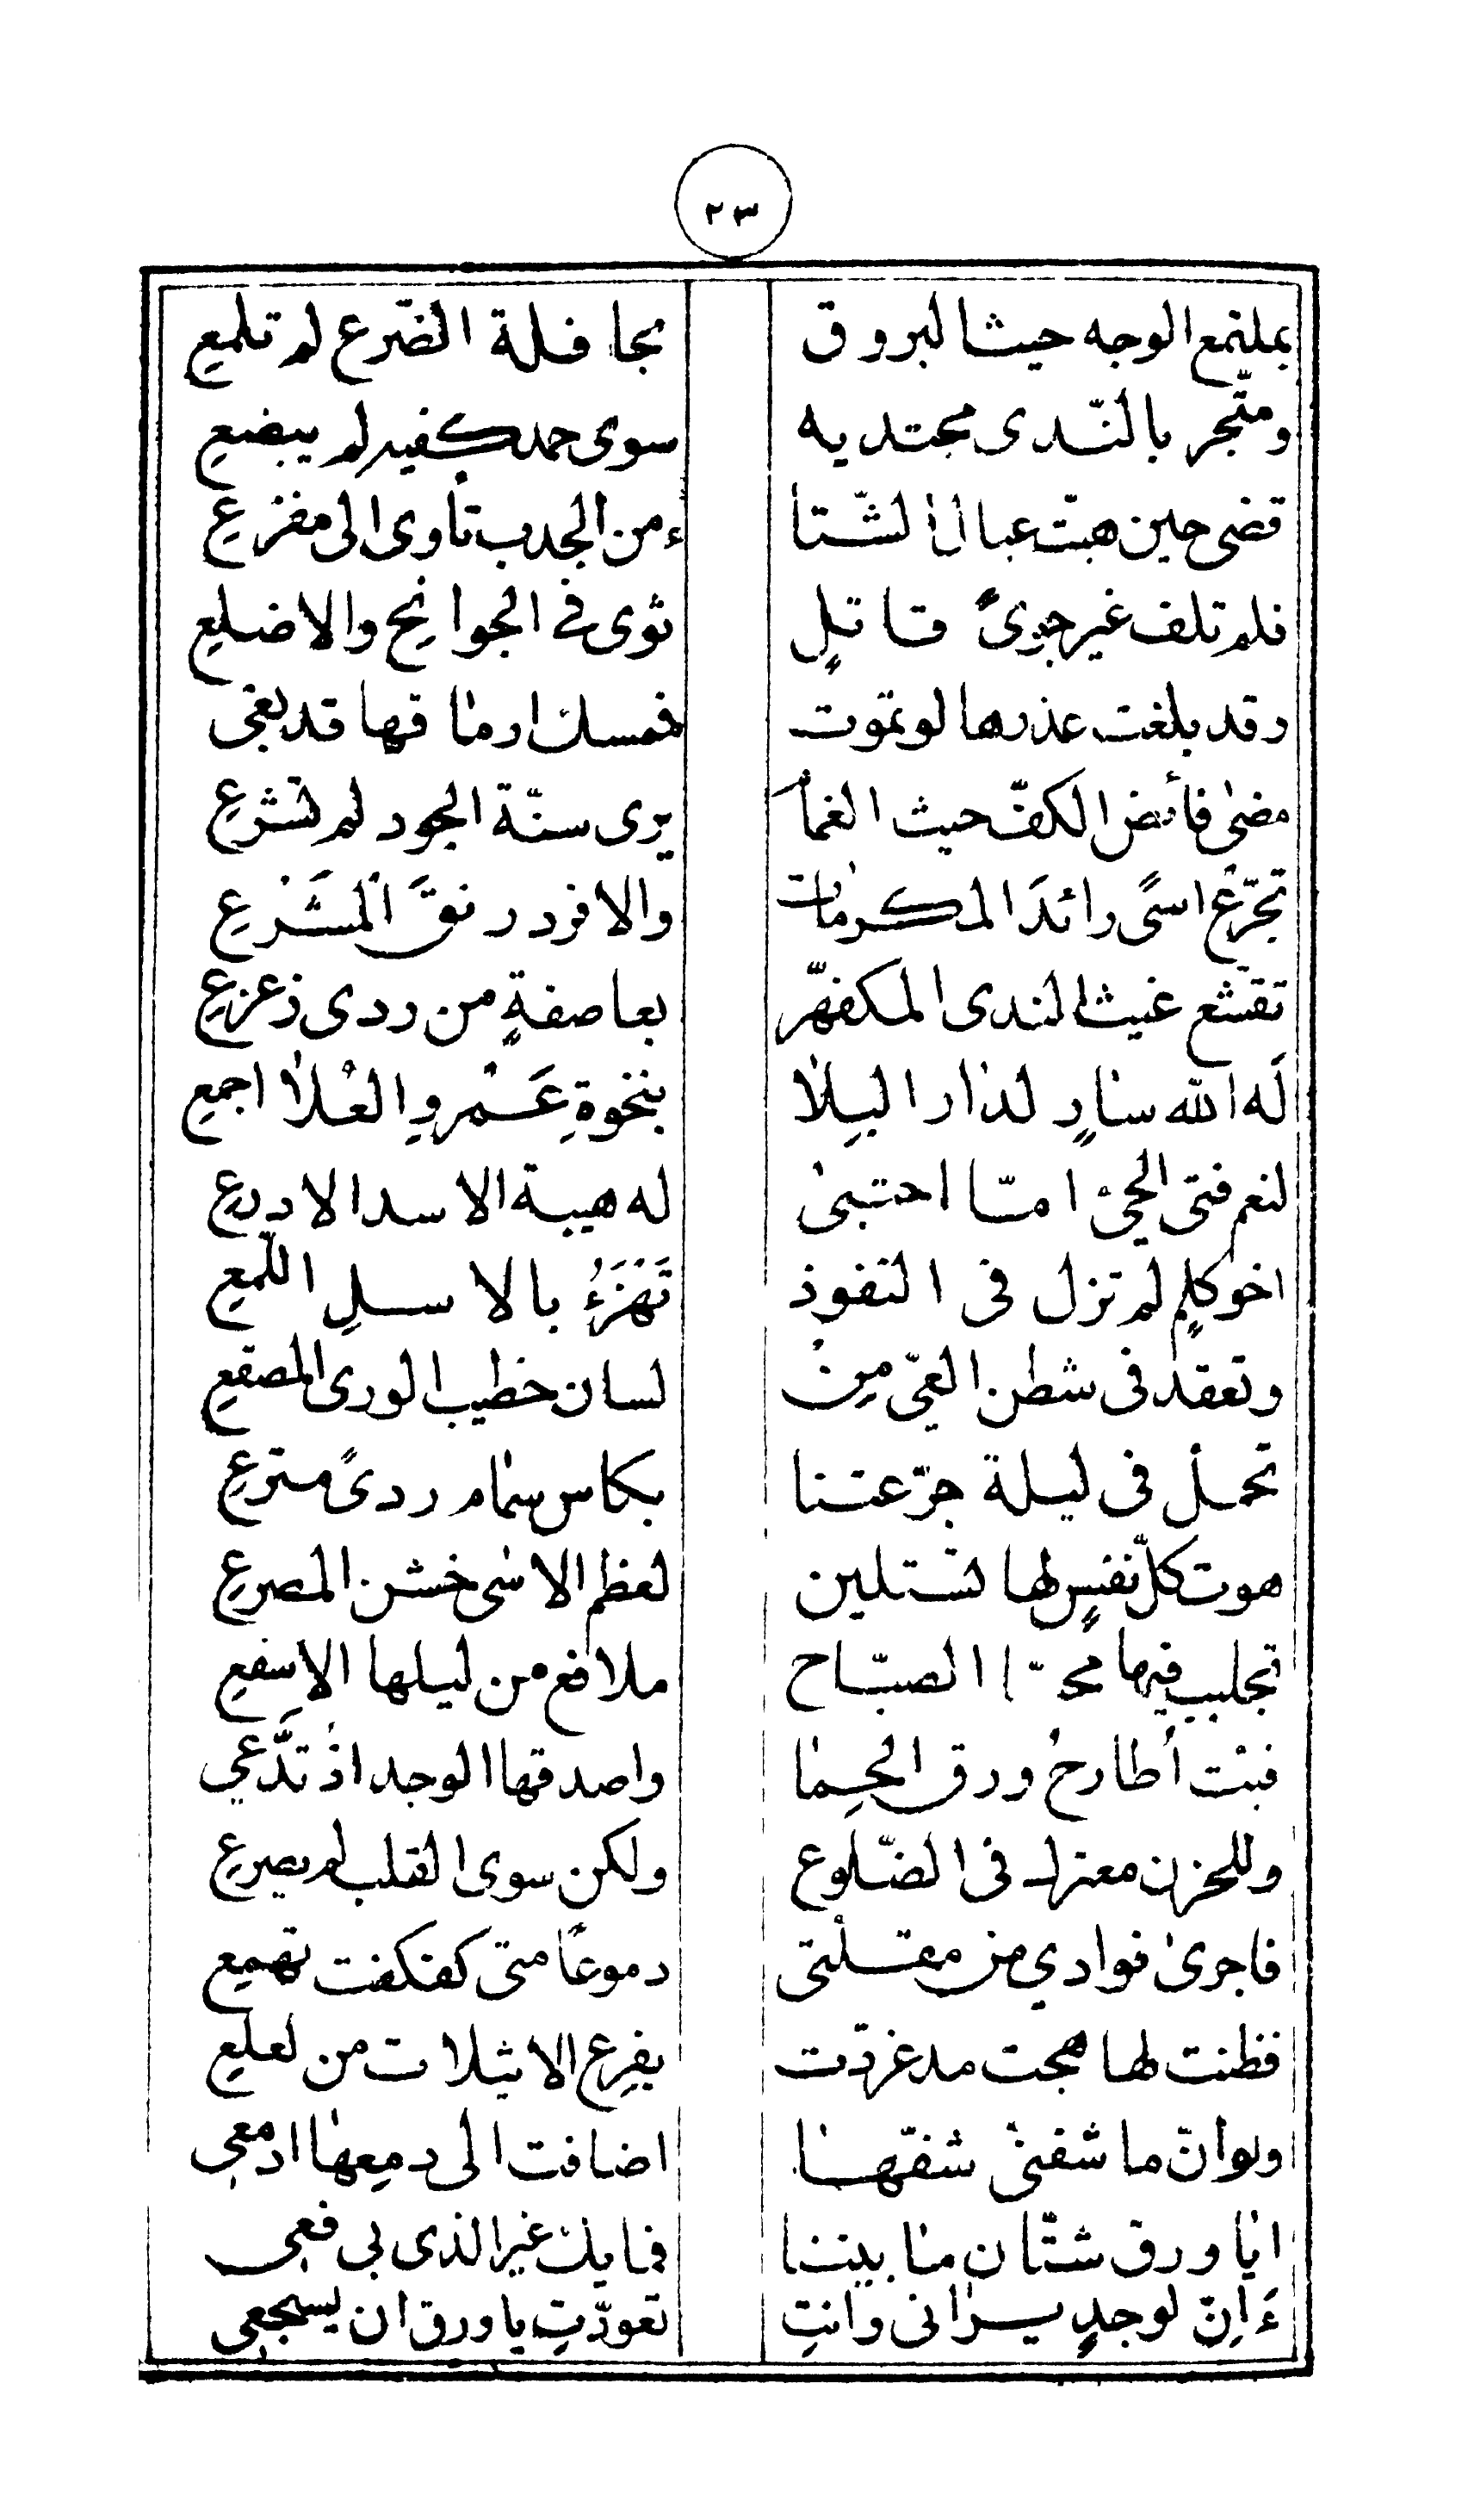 ٢٣
بملتمع الوجه حيث البروق بحافلة الضّرع لم تلمع
ومتّجر بالنّدى مجتديه سوى حمد كفيه لم يبضع
قضى حين هبت عبالا الشّتا ء من الجدب تأوى الى مفزع
فلم تلف غير جوىً قاتلٍ ثوى فى الجوانح والاضلع
وقد بلغت عذرها لو تموت فمسك ارماقها قد نعى
مضى فأئض الكفّ حيث الغما يرى سنّة الجود لم تشرع
تجرّع اسىً رائدَ المكرمات والا فرد رنقَ المَشرَع
تقشع غيث الندى المكفهرّ بعاصفةٍ من ردى زعزع
لَه الله سارٍ لدار البِلا بنخوةِ عَمْروِ العُلا اجمع
لنعم فتى الحىّ امّا احتبى له هيبة الاسد الادرع
اخو كلمٍ لم تزل فى النفوذ تَهْزَءُ بالاسلِ اللّمع
وتعقد فى شطن العىّ مِن لسان خطيب الورى المصقع
تحمل فى ليلة جرّعتنا بكاس سمام ردىً مترع
هوت كلّ نفسٍ لها تستلين لعظم الاسى خشن المصرع
تجلبب فيها محيّا الصبّاح ملافع من ليلها الاسفع
فبتّ أطارحُ ورق الحِما واصدقها الوجد اذ تدَّعي
وللحزن معترك فى الضّلوع ولكن سوى القلب لم يصرع
فاجرى فوادي من مقلتى دموعاً متى كفكفت تهمع
فظنت لها هجت مذ غرّدت بفرع الاثيلات من لعلع
ولو انّ ما شفنى شفّها اضافت الى دمعها ادمعى
ايا ورق شتّان ما بيننا فما بك غير الذى بى فعى
ءَاِنّ لوجدٍ يرانى وانتِ تعودّتِ يا ورق ان يسجعى